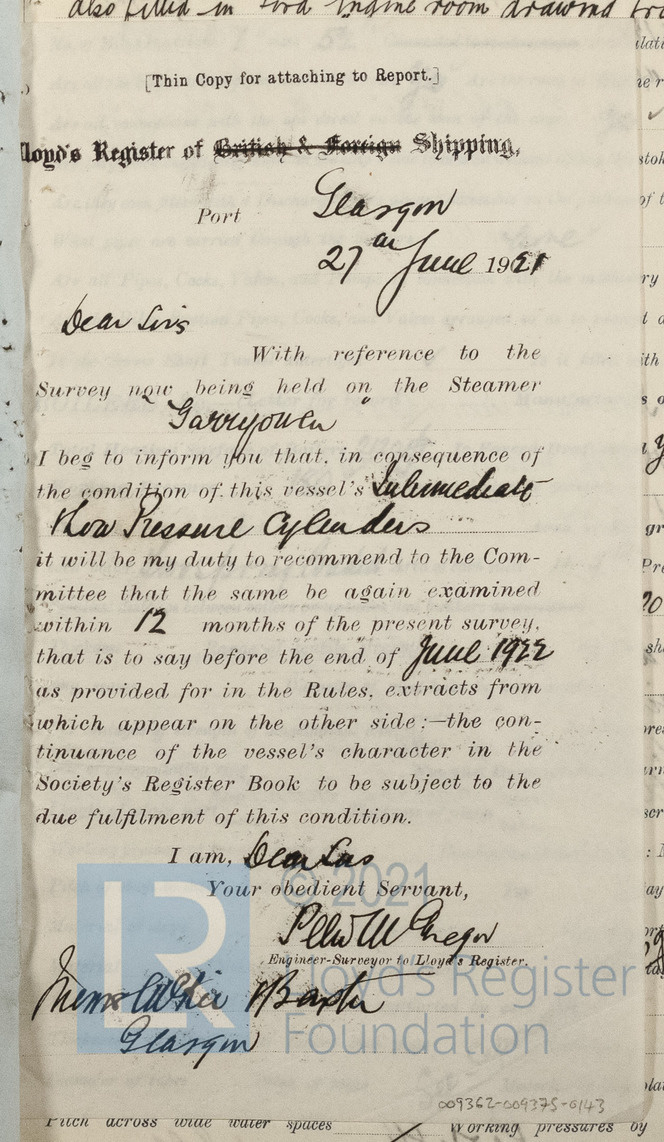 also fitted in Ford Engine room drawing
[Thin Copy for attaching to Report.]
Lloyd's Register of British & Foreign Shipping,
Port Glasgow
27th June 1921
Dear Sirs
With reference to the
Survey now being held on the Steamer
Garryowen
I beg to inform you that, in consequence of
the condition of this vessel's Intermediate
& Low Pressure Cylinders
it will be my duty to recommend to the Com-
mittee that the same be again examined
within 12 months of the present survey,
that is to say before the end of June 1922
as provided for in the Rules, extracts from
which appear on the other side:—the con-
tinuance of the vessel's character in the
Society's Register Book to be subject to the
due fulfilment of this condition.
I am, Dear Sirs
Your obedient Servant,
McGregor
Engineer-Surveyor to Lloyd's Register.
& Baxter
Glasgow
© 2021
LR
Lloyd's Register
Foundation
009362-009375-0143
Pitch across wide water spaces Working pressures by